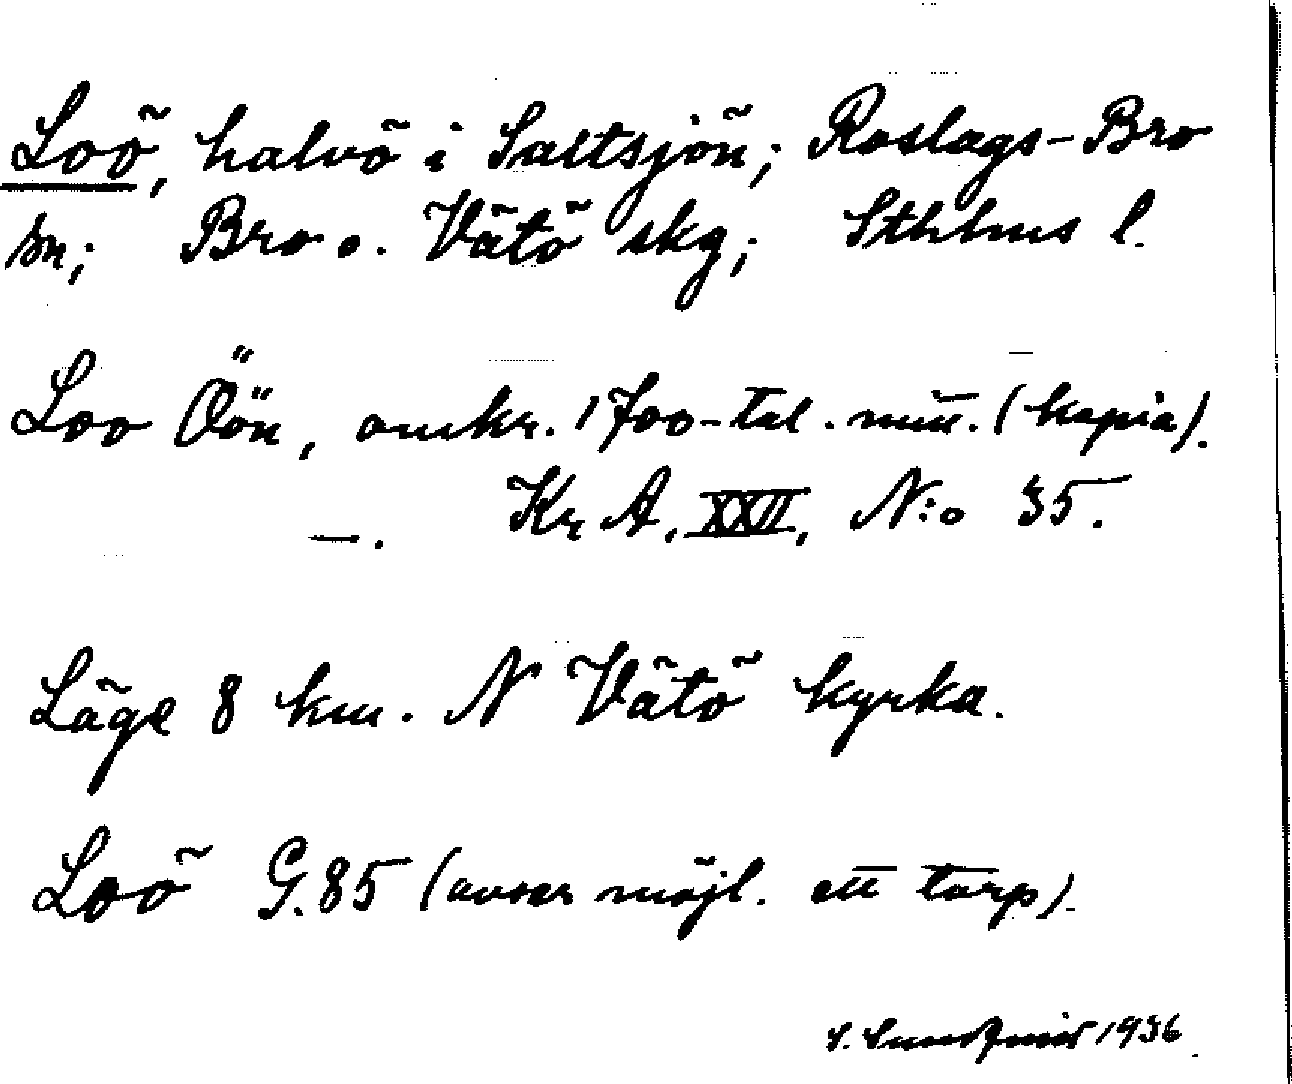 Loö, halvö i Saltsjön; Roslags-Bro
sn; Bro o. Vätö skg; Sthlms l.
Loo Öön, omkr. 1700-tal. mitt. (kopia).
—. Kr A, XXII, N:o 35.
Läge 8 km. N Vätö kyrka.
Loö G.85 (avser möjl. ett torp).
1936